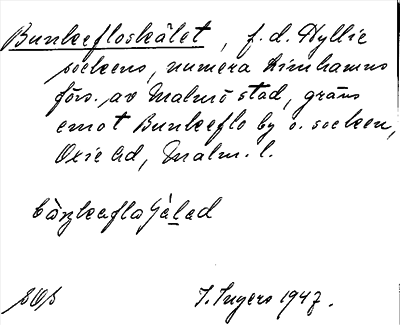 Bunkefloskälet, f.d. Hyllie
sockens, numera Limhamns
förs. av Malmö stad, gräns
emot Bunkeflo by o. socken,
Oxie hd, Malm. l.
SOS
J. Ingers 1947.